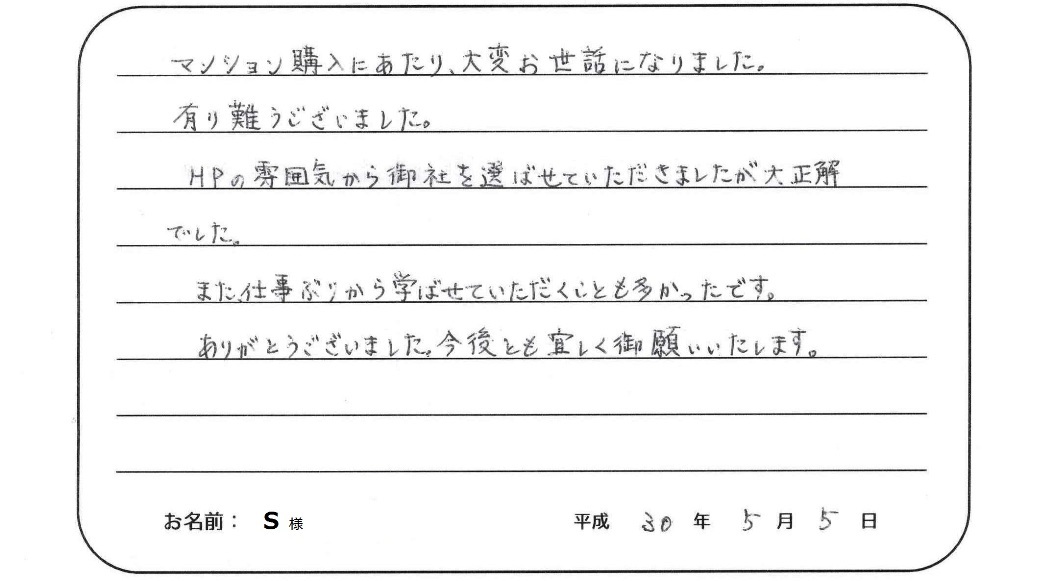 マンション購入にあたり、大変お世話になりました。
有り難うございました。
HPの雰囲気から御社を選ばせていただきましたが大正解
でした。
また、仕事ぶりから学ばせていただくことも多かったです。
ありがとうございました。今後とも宜しく御願いいたします。
お名前： S 様 平成 30 年 5 月 5 日